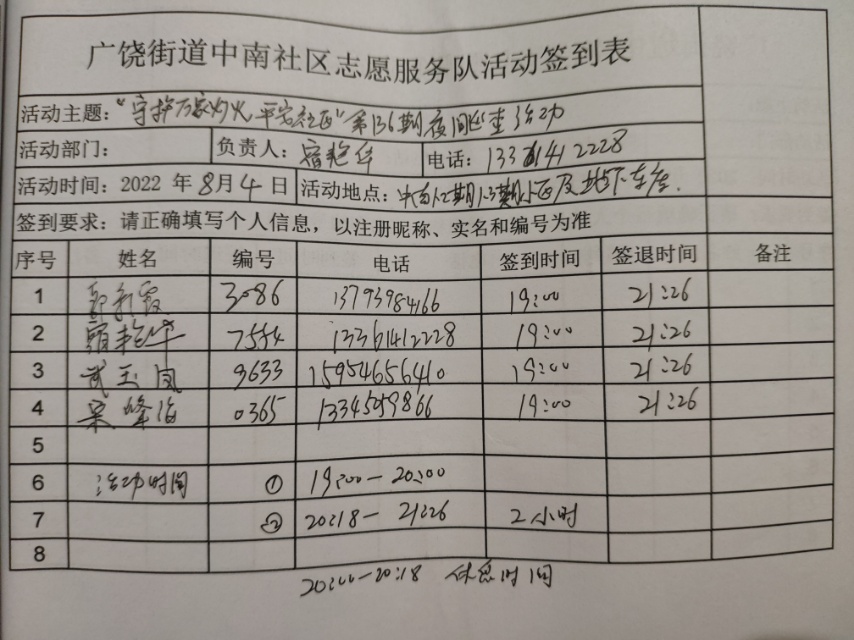 广饶街道中南社区志愿服务队活动签到表
活动主题：“守护万家灯火 平安社区”第136期夜间巡查活动
活动部门： 负责人：宿艳华 电话：13361412228
活动时间：2022 年 8月 4 日 活动地点：中南1.2期1.3期小区及地下车库.
签到要求：请正确填写个人信息，以注册昵称、实名和编号为准
序号 姓名 编号 电话 签到时间 签退时间 备注
1 3086 13793984166 19:00 21:26
2 宿艳华 7554 13361412228 19:00 21:26
3 武玉凤 9633 15954656410 19:00 21:26
4 0365 13345059866 19:00 21:26
5
6 活动时间 ① 19:00—20:00
7 ② 20:18—21:26 2小时
8
20:00—20:18 休息时间